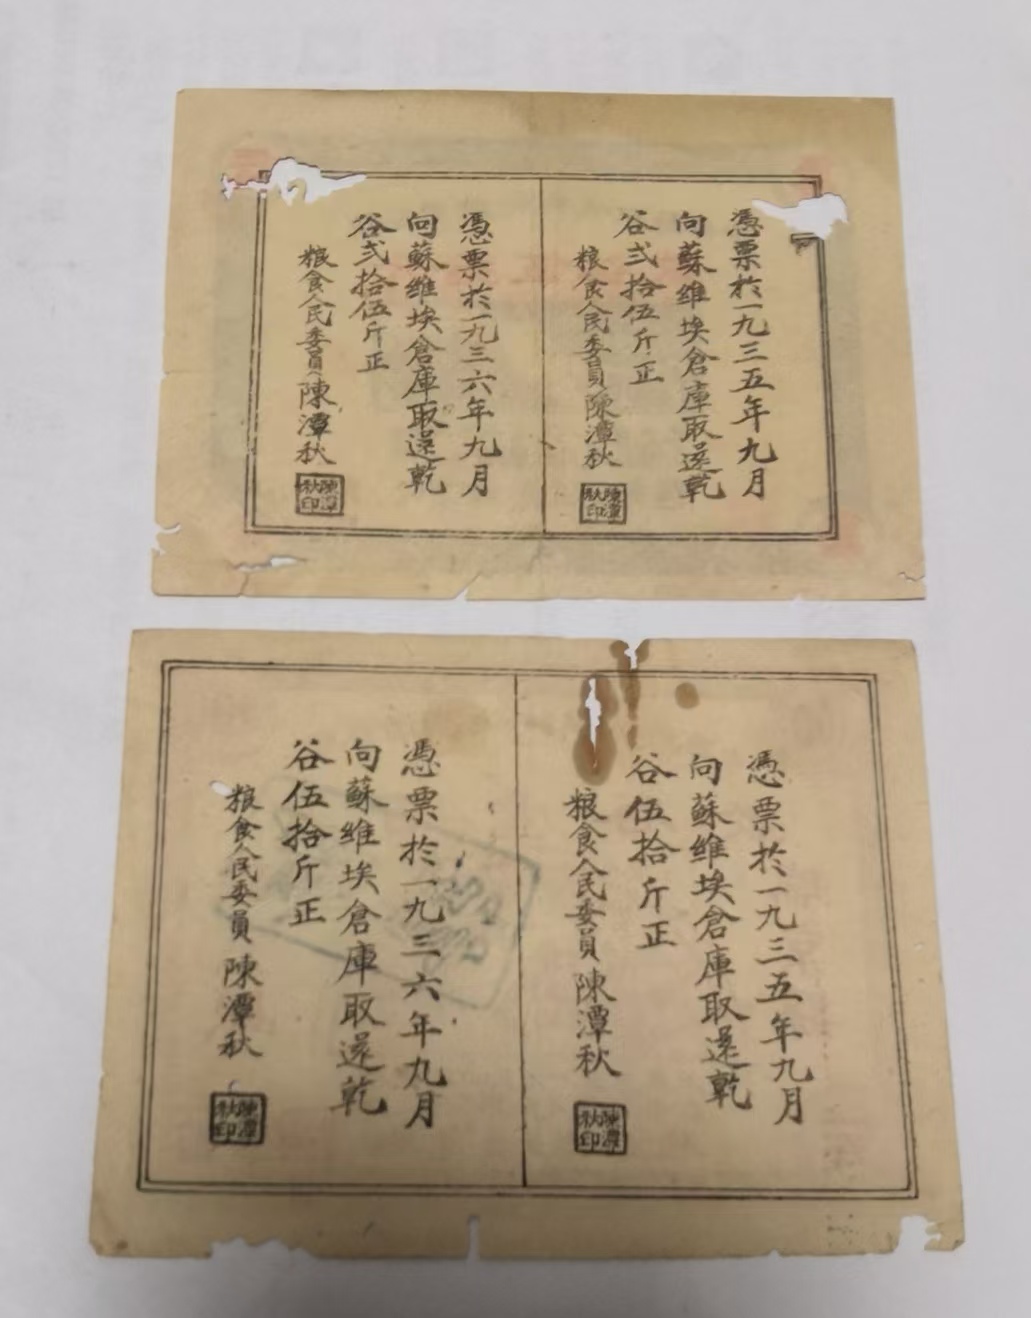 憑票於一九三五年九月
向蘇維埃倉庫取還乾
谷弍拾伍斤正
粮食人民委員陳潭秋
陳潭秋印
憑票於一九三六年九月
向蘇維埃倉庫取還乾
谷弍拾伍斤正
粮食人民委員陳潭秋
陳潭秋印
憑票於一九三五年九月
向蘇維埃倉庫取還乾
谷伍拾斤正
粮食人民委員陳潭秋
陳潭秋印
憑票於一九三六年九月
向蘇維埃倉庫取還乾
谷伍拾斤正
粮食人民委員陳潭秋
陳潭秋印